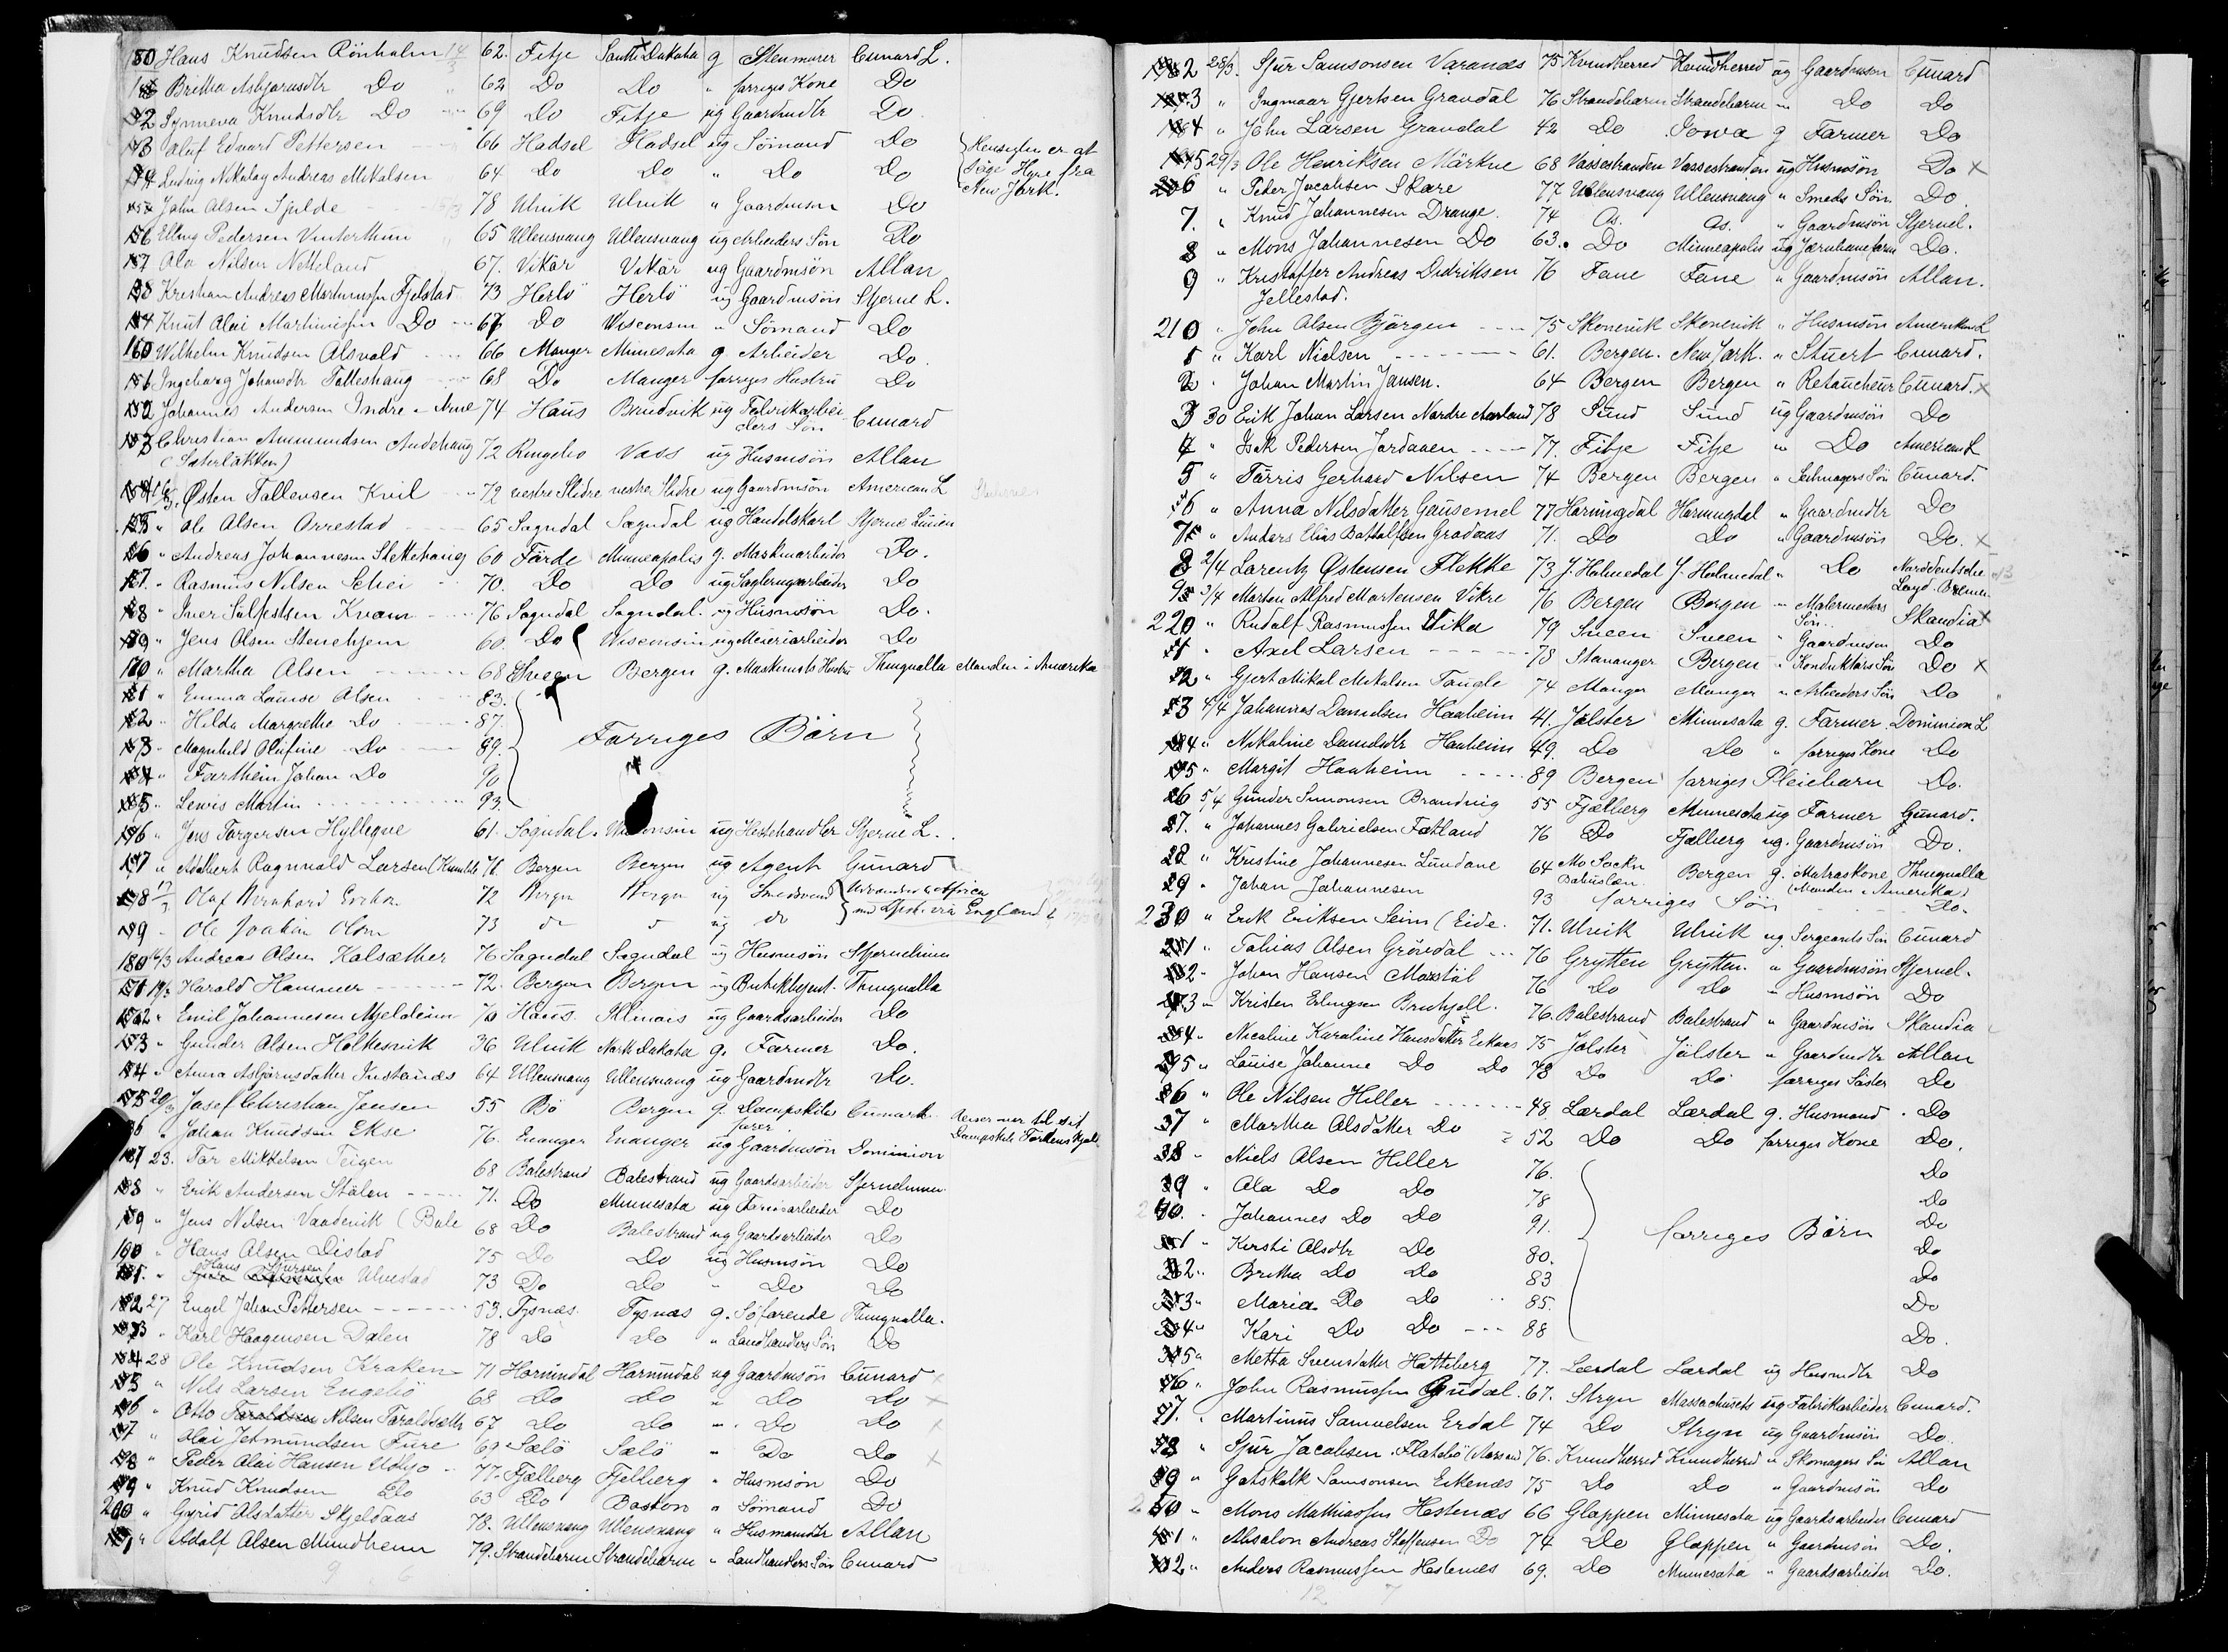 150 Hans Knudsen Rönholm 14 62. Fitje South Dakota g Stenmurer Cunard L.
Britha Asbjørnsdtr Do " 62 Do Do " forriges Kone Do
52 Synneva Knudsdtr Do 69 Do Fitje ug Gaardmdtr Do
Oluf Edvard Pettersen 66 Hadsel Hadsel ug Sömand Do Hensigten er at
Ludvig Nikolay Andreas Mikalsen 64 Do Do " Do Do søge Hyre fra
John Olsen Spilde 78 Ulvik Ulvik " Gaardmsøn Do New York.
56 Elling Pedersen Vinterthun 65 Ullensvang Ullensvang ug Arbeiders Sön Do
57 Ola Nilsen Netteland 67. Vikör Vikör ug Gaardmsön Allan
58 Kristian Andreas Martinussen Fjelstad 73 Herlö Herlö ug Gaardmsön Stjerne L.
Knut Olai Martinussen Do 67 Do Wisconsin " Sömand Do
160 Wilhelm Knudsen Alsvold 66 Manger Minnesota g Arbeider Do.
Ingeborg Johansdtr Tolleshaug 68 Do Manger forriges Hustru Do
Johannes Andersen Indre-Arne 74 Haus Bruvik ug Fabrikarbei-
ders Sön Cunard
Christian Ammundsen Andehaug 72 Ringebo Voss ug Husmsön Allan
(Sæterløkken)
Østen Tollevsen Kvil 72 vestre Slidre vestre Slidre ug Gaardmsön American L
" Ole Olsen Orrestad 65 Sogndal Sogndal ug Handelskarl Stjerne Linien
" Andreas Johannesen Slettehaug 60 Förde Minneapolis g. Maskinarbeider Do.
" Rasmus Nilsen Schei 70. Do Do ug Sagbrugsarbeider Do
" Iver Sjulsetsen Kvam 76 Sogndal Sogndal. ug Husmsön Do.
" Jens Olsen Stenehjem 60. Do Wisconsin ug Meieriarbeider Do
170 " Martha Olsen 68 Sveen Bergen g. Maskinists Hustru Thingvalla Manden i Amerika
" Emma Louise Olsen 83.
" Hilda Margrethe Do 87.
" Magnhild Olufine Do 89. Forriges Börn
" Farthein Johan Do 90
" Lewis Martin 93.
176 " Jens Torgersen Hyllegve 61. Sogndal. Wisconsin ug Hestehandler Stjerne L.
177 " Adelbert Ragnvald Larsen 76. Bergen Bergen ug Agent Cunard
178 17/3 Olaf Bernhard 72 Bergen Bergen ug Smedsvend Udvandrer t. Africa
179 " Ole Joakim Olsen 73 do do ug do via England
180 16/3 Andreas Olsen Kalsæther 76 Sogndal Sogndal ug Husmsön Stjernelinien
Harald Hammer 72. Bergen Bergen ug Butikbetjent. Thingvalla
" Emil Johannesen Mjeldeim 70 Haus. Illinois ug Gaardsarbeider Do
" Gunder Olsen Holkesvik 36 Ulvik North Dakota g. Farmer Do.
" Anna Asbjørnsdatter Instenæs 64 Ullensvang Ullensvang ug Gaardmdtr Do.
20/3 Josef Christian Jensen 55 Bö Bergen g. Dampskibs Cunard. Reiser over til sit
fører
" Johan Knudsen Ekse 76. Evanger Evanger ug Gaardmsön Dominion Dampskib
187 23. Tor Mikkelsen Teigen 68 Balestrand Balestrand ug Gaardsarbeider Stjernelinien
" Erik Andersen Stölen 71. Do Minnesota ug Farmarbeider Do
" Jens Nilsen Vaadevik (Bale 68 Do Balestrand ug Gaardsarbeider Do
190 " Hans Olsen Distad 75 Do Do ug Husmsön Do
Hans Sjursen
" Ulvestad 73 Do Do " Do Do
27 Engel Johan Pettersen 53. Tysnæs. Tysnæs g. Söfarende Thingvalla.
" Karl Haagensen Dalen 78 Do Do " Landhandlers Sön Do
28 Ole Knudsen Kraken 71 Hornindal Hornindal ug Gaardmsön Cunard
" Nils Larsen Engebö 68 Do Do " Do Do
" Otto Nilsen Taraldsæth 67 Do Do " Do Do
" Olai Jetmundsen Fure 69 Sælö Sælö " Do Do
" Peder Olai Hansen 77. Fjælberg Fjelberg " Husmsön Do
" Knud Knudsen Do 63 Do Boston " Sömand Do
200 " Gyrid Olsdatter Skjeldaas 78. Ullensvang Ullensvang " Husmandsdtr Allan
" Adolf Olsen Mundheim 79. Strandebarm Strandebarm " Landhandlers Sön Cunard
9 6
2 28/3. Sjur Samsonsen Varanæs 75 Kvindherred Kvindherred ug Gaardmsön Cunard
3 " Ingmaar Gjertsen Gravdal 76 Strandebarm Strandebarm " Do Do
4 " John Larsen Gravdal 42 Do Iowa g Farmer Do
5 29/3 Ole Henriksen Mörkve 68 Vossestranden Vossestranden ug Husmsön Do x
206 " Peder Jacobsen Skare 77 Ullensvang Ullensvang " Smeds Sön Do
7. " Knud Johannesen Drange. 74 Os. Os. " Gaardmsön Stjernel.
8 " Mons Johannesen Do 63. Do Minneapolis ug Jernbanearb Do.
9 " Kristoffer Andreas Didriksen 76 Fane Fane " Gaardmsön Allan.
Jellestad.
210 " John Olsen Bjørgen 75 Skonevik Skonevik " Husmsön American L
1 " Karl Nielsen 61. Bergen. New York. " Stuert Cunard.
2 " Johan Martin Jansen. 64 Bergen Bergen " Retoucheur Cunard. x
3 30 Erik Johan Larsen Nordre Morland 78 Sund Sund ug Gaardmsön Do
4 " Isak Pedersen Jordaaen 77. Fitje Fitje " Do American L
5 " Torris Gerhard Nilsen 74 Bergen Bergen " Seilmagers Sön Cunard.
6 " Anna Nilsdatter Gausemel 77 Horningdal Horningdal " Gaardmdtr Do
7 " Anders Elias Battolfsen Grodaas 71. Do Do " Gaardmsön Do. x
8 2/4 Larentz Østensen Flekke 73 Y. Holmedal Y. Holmedal " Do Norddeutsche
Loyd. Bremen
9 3/4 Morten Alfred Mortensen Vikre 76 Bergen Bergen " Malermesters
Sön Skandia x
220 " Rudolf Rasmussen Vika 79 Sveen Sveen " Gaardmsön Do
" Axel Larsen 78 Stavanger Bergen " Konduktörs Sön Do x
2 " Gjert Mikal Mikalsen Tangle 74 Manger Manger " Arbeiders Sön Do
3 4/4 Johannes Danielsen Haaheim 41. Jölster Minnesota g. Farmer. Dominion L
4 " Nikoline Danielsdtr Haaheim 49. Do Do " forriges Kone Do
5 " Margit Haaheim 89 Bergen forriges Pleiebarn Do.
26 5/4 Gunder Simonsen Brandvig 55 Fjælberg Minnesota ug Farmer Cunard.
27. " Johannes Gabrielsen Fatland 76 Do Fjelberg ug. Gaardmsön Do.
28 " Kristine Johannesen Lundane 64 Mo Sockn Bergen g. Matroskone Thingvalla
Bahuslæn. (Manden i Amerika)
29 " Johan Johannesen 93 forriges Sön Do.
230 " Erik Eriksen Seim (Eide. 71. Ulvik Ulvik ug Sergeants Sön Cunard
1 " Tobias Olsen Grövdal 76 Grytten Grytten. " Gaardmsön Stjernel.
2 " Johan Hansen Marstöl 76 Do Do " Husmsön Do
3 " Kristen Erlingsen 76. Balestrand Balestrand " Gaardmsön Skandia
4 " Nicoline Karoline Hansdatter Eikaas 75 Jölster Jölster " Gaardmdtr Allan
5 " Louise Johanne Do Do 78 Do Do forriges Söster Do
36 " Ole Nilsen Hiller 48. Lærdal Lærdal g. Husmand Do
37 " Martha Olsdatter Do 52 Do Do forriges Kone Do.
38 " Niels Olsen Hiller 76. Do
39 " Ola Do Do 78 Do
240. " Johannes Do Do 91. forriges Börn Do
1 " Kirsti Olsdtr Do 80. Do
2 " Britha Do Do 83 Do
3 " Maria Do Do 85. Do
4 " Kari Do Do 88 Do.
5 " Metta Svensdatter Hatteberg 77. Lærdal Lærdal ug Husmdtr Do
46 " John Rasmussen Gudal. 67. Stryn Massachusets ug Fabrikarbeider Cunard.
47. " Martinus Samuelsen Erdal 74 Do Stryn ug Gaardmsön Do.
48 " Sjur Jacobsen Flatebö 76. Kvindherred Kvindherred " Skomagers Sön Allan
49 " Gotskalk Samsonsen Eikenæs 75 Do Do " Gaardmsön Do
250 " Mons Mathiassen Hestenæs 66 Gloppen Minnesota ug Gaardsarbeider Cunard
1 " Absalon Andreas Steffensen Do 74 Do Gloppen " Gaardmsön Do.
2 " Anders Rasmussen Hestenæs 69. Do Minnesota " Gaardsarbeider Do.
12 7